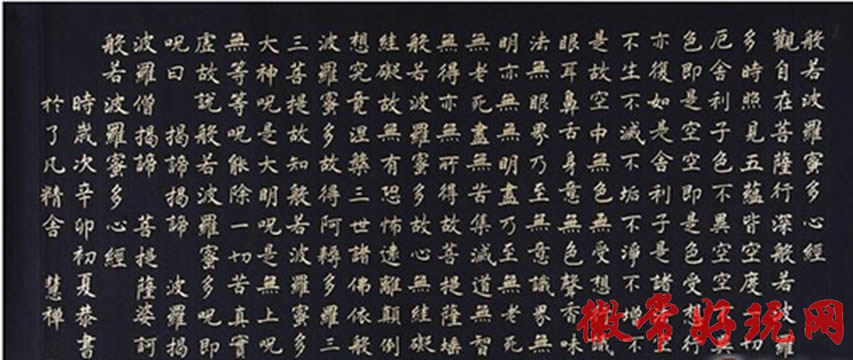 般若波羅蜜多心經
觀自在菩薩行深般若波
多時照見五蘊皆空度一切
厄舍利子色不異空空不
色即是空空即是色受想行
亦復如是舍利子是諸
不生不滅不垢不淨不增不
是故空中無色無受想識
眼耳鼻舌身意無色聲香味
法無眼界乃至無意識界無
明亦無無明盡乃至無老死
無老死盡無苦集滅道無智
無得亦無所得故菩提薩埵
般若波羅蜜多故心無絓礙
絓礙故無有恐怖遠離顛倒
想究竟涅槃三世諸佛依般
波羅蜜多故得阿耨多羅三
三菩提故知般若波羅蜜多
大神呪是大明呪是無上呪
無等等呪能除一切苦真實
虛故說般若波羅蜜多呪即
呪曰 揭諦揭諦 波羅揭
波羅僧揭諦 菩提薩婆訶
般若波羅蜜多心經
時歲次辛卯初夏恭書
於了凡精舍 慧禪
徽常好玩网